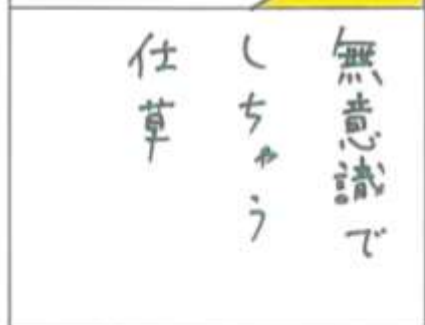 無意識で
しちゃう
仕草